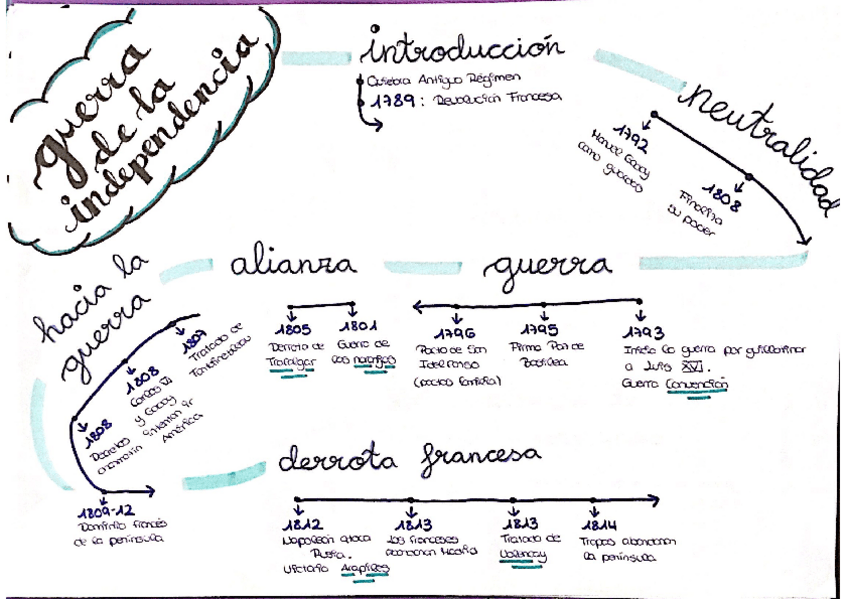 guerra
de la
independencia
introducción
Quiebra Antiguo Régimen
1789: Revolución Francesa
neutralidad
1792
Manuel Godoy
como
1808
Finaliza
su poder
guerra
1793
Inicio la guerra por guillotinar
a Luis XVI.
Guerra Convención
1795
Firma Paz de
Basilea
1796
Pacto de San
Ildefonso
(pactos familia)
alianza
1801
Guerra de
las naranjas
1805
Derrota de
Trafalgar
hacia la
guerra
1807
Tratado de
Fontainebleau
1808
Carlos IV
y Godoy
intentan ir
América
1808
Decretos
1809-12
Dominio francés
de la península
derrota francesa
1812
Napoleón ataca
Rusia.
Victoria Arapiles
1813
Los franceses
abandonan Madrid
1813
Tratado de
Valençay
1814
Tropas abandonan
la península